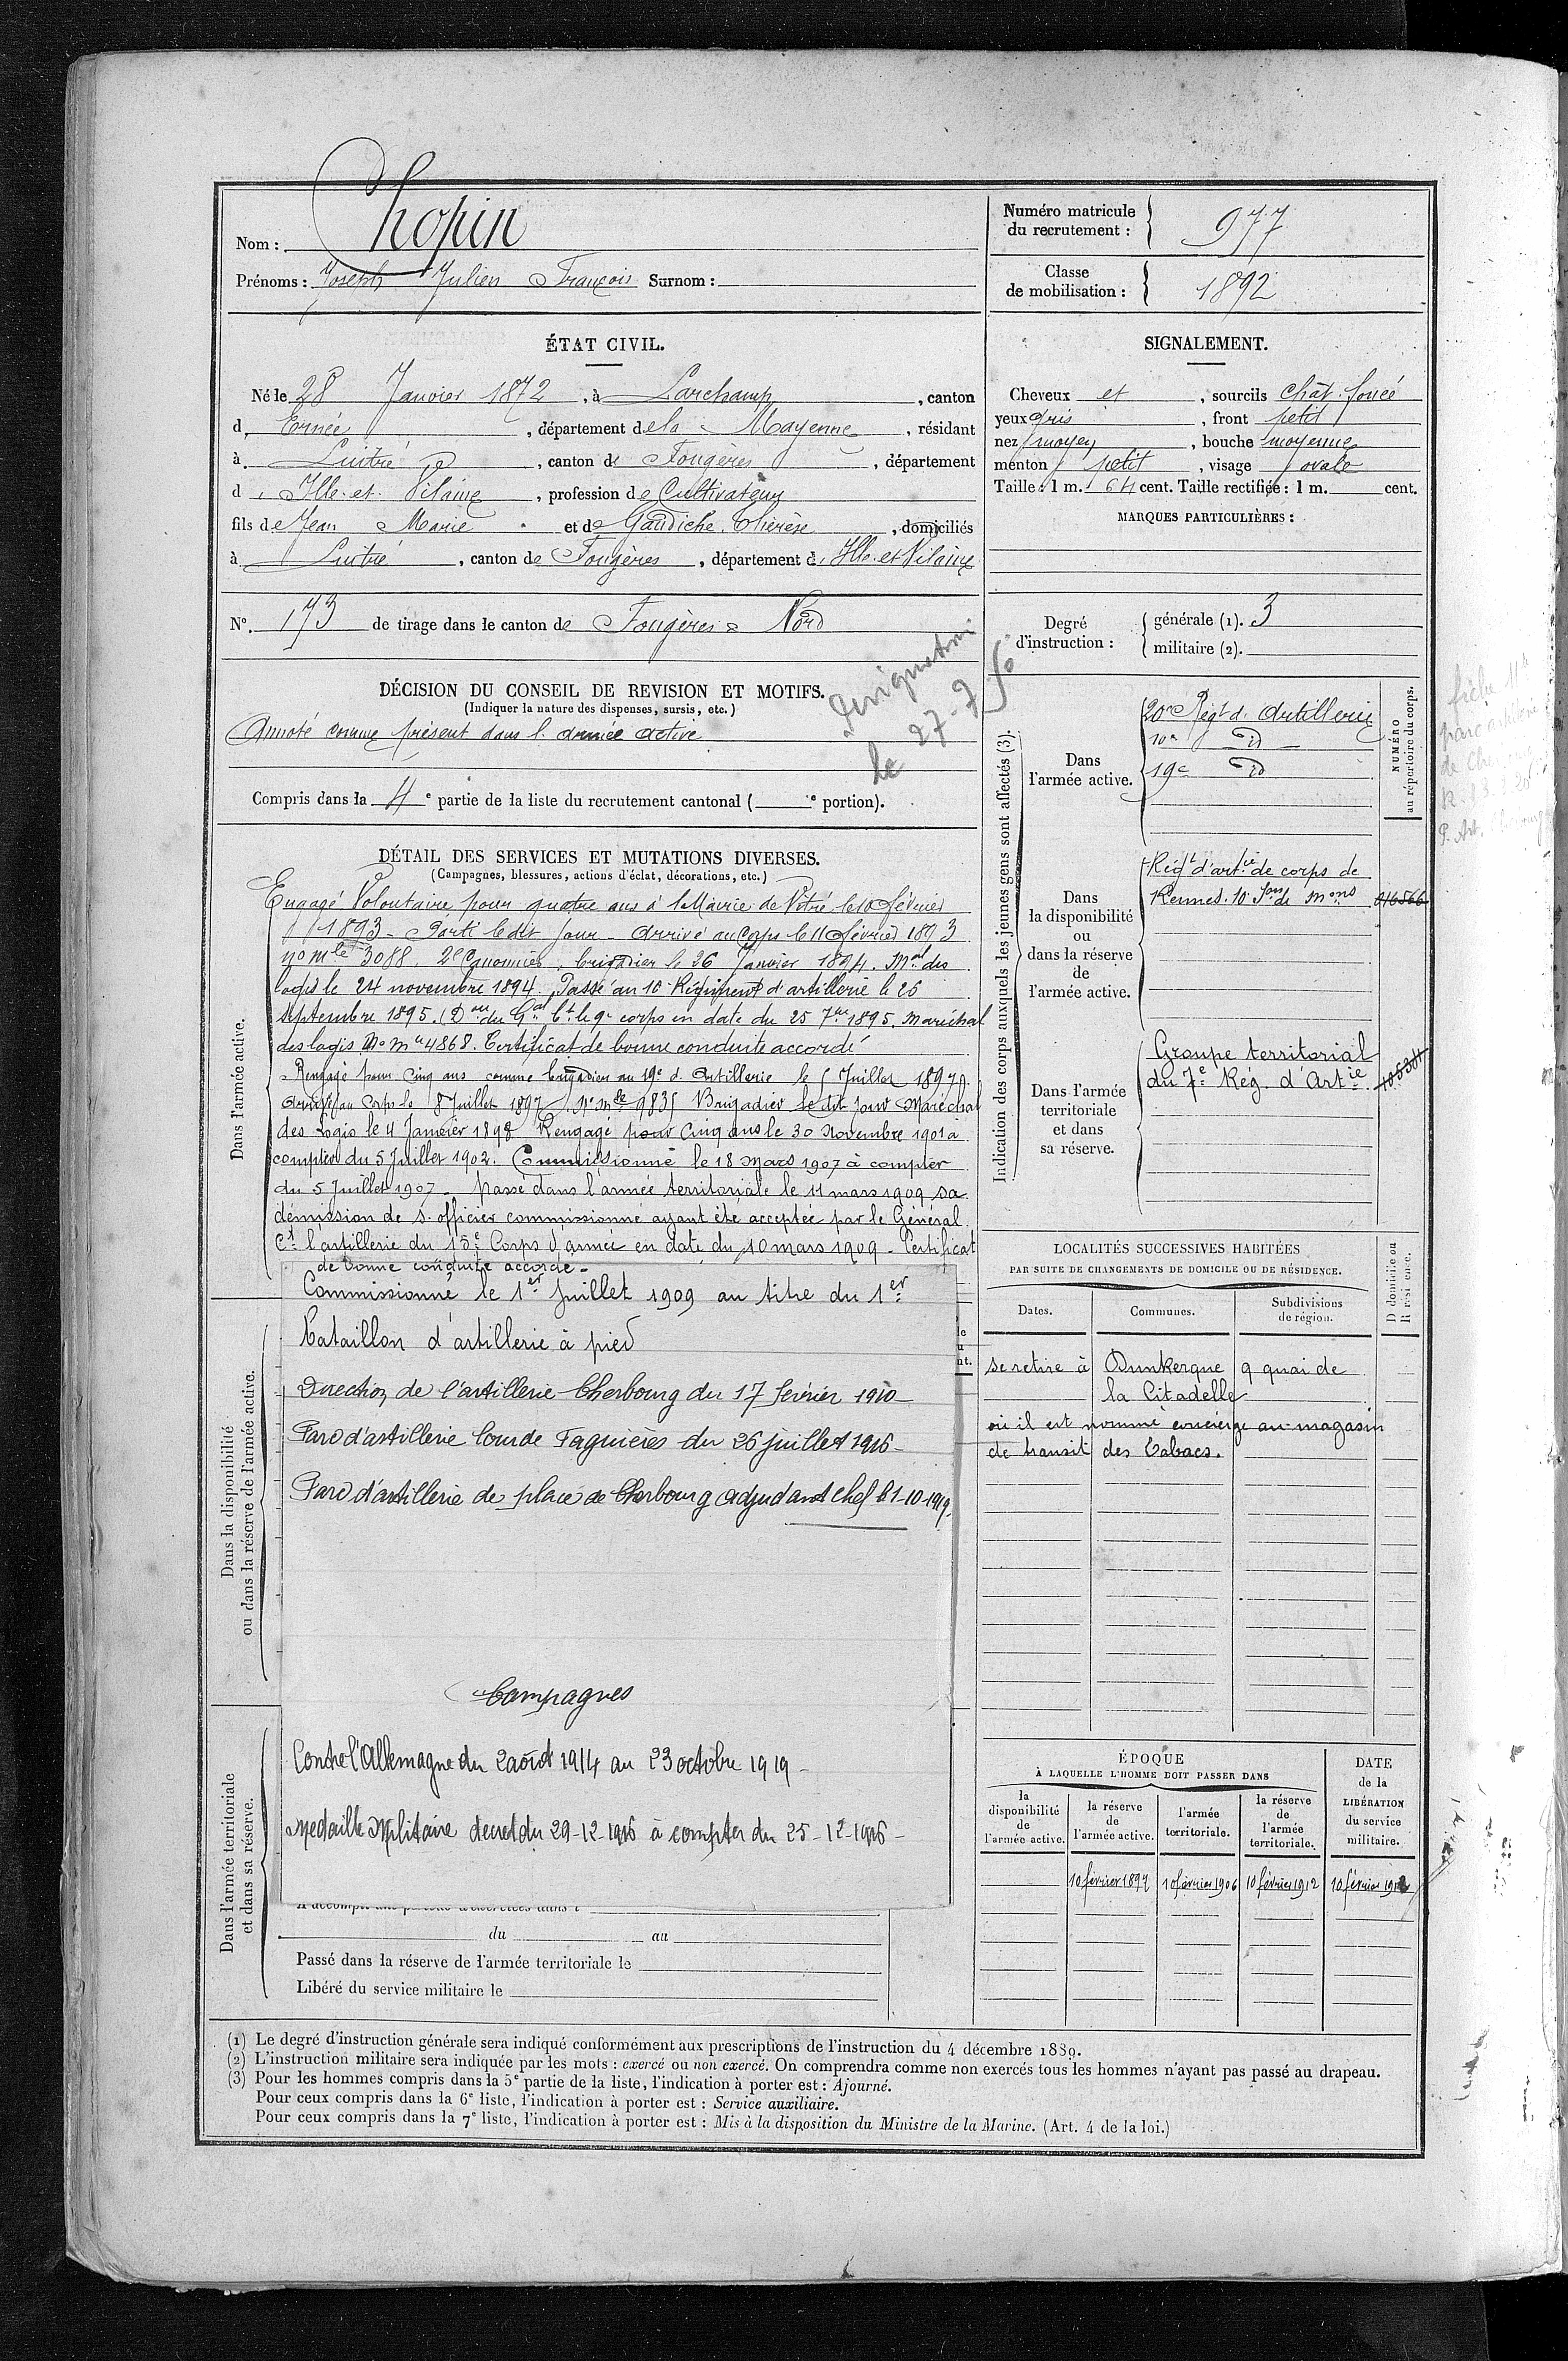 Nom : Chopin
Prénoms : Joseph Julien François Surnom :
Numéro matricule du recrutement : 977
Classe de mobilisation : 1892
ÉTAT CIVIL.
Né le 28 Janvier 1872, à Larchamp, canton
d'Ernée, département de la Mayenne, résidant
à Luitré, canton de Fougères, département
d'Ille-et-Vilaine, profession de Cultivateur
fils de Jean Marie et de Gaudiche Thérèse, domiciliés
à Luitré, canton de Fougères, département d'Ille-et-Vilaine
N° 173 de tirage dans le canton de Fougères Nord
SIGNALEMENT.
Cheveux et, sourcils chât. foncé
yeux gris, front petit
nez moyen, bouche moyenne
menton petit, visage ovale
Taille : 1 m. 64 cent. Taille rectifiée : 1 m. cent.
MARQUES PARTICULIÈRES :
Degré d'instruction : générale (1). 3
militaire (2).
DÉCISION DU CONSEIL DE REVISION ET MOTIFS.
(Indiquer la nature des dispenses, sursis, etc.)
Annoté comme présent dans l'armée active
le 27-9
Compris dans la 4e partie de la liste du recrutement cantonal ( e portion).
DÉTAIL DES SERVICES ET MUTATIONS DIVERSES.
(Campagnes, blessures, actions d'éclat, décorations, etc.)
Dans l'armée active.
Engagé Volontaire pour quatre ans à la Mairie de Vitré le 10 février
1893 - Parti le dit jour - Arrivé au Corps le 11 février 1893
no mle 3088. 2e Canonnier, brigadier le 26 Janvier 1894. Mal des
logis le 24 novembre 1894. Passé au 10 Régiment d'artillerie le 26
septembre 1895. (Don du Gal Ct le 9e corps en date du 25 7bre 1895. Maréchal
des logis No Mle 4868. Certificat de bonne conduite accordé
Rengagé pour cinq ans comme brigadier au 19e d'Artillerie le 5 Juillet 1897.
Arrivé au Corps le 8 Juillet 1897 No mle 9835 Brigadier le dit jour Maréchal
des Logis le 4 Janvier 1898 Rengagé pour cinq ans le 30 Novembre 1901 à
compter du 5 Juillet 1902. Commissionné le 18 mars 1907 à compter
du 5 Juillet 1907 - Passé dans l'armée territoriale le 11 mars 1909 sa
démission de s. officier commissionné ayant été acceptée par le Général
Ct l'artillerie du 15e Corps d'armée en date du 10 mars 1909 - Certificat
de bonne conduite accordé -
Commissionné le 1er Juillet 1909 au titre du 1er
Bataillon d'artillerie à pied
Direction de l'artillerie Cherbourg du 17 février 1910 -
Parc d'artillerie lourde Fagnières du 26 juillet 1916 -
Parc d'artillerie de place de Cherbourg adjudant chef le 1-10-1919.
Campagnes
Contre l'Allemagne du 2 août 1914 au 23 octobre 1919 -
Médaille Militaire decret du 29-12-1916 à compter du 25-12-1916 -
Dans la disponibilité ou dans la réserve de l'armée active.
Dans l'armée territoriale et dans sa réserve.
du au
Passé dans la réserve de l'armée territoriale le
Libéré du service militaire le
Indication des corps auxquels les jeunes gens sont affectés (3).
NUMÉRO au répertoire du corps.
Dans l'armée active.
20e Régt d'Artillerie
10e d°
19e d°
Dans la disponibilité ou dans la réserve de l'armée active.
Régt d'artie de corps de
Rennes. 10 Son de Mons 016566
Dans l'armée territoriale et dans sa réserve.
Groupe territorial
du 7e Rég. d'Artie
LOCALITÉS SUCCESSIVES HABITÉES
PAR SUITE DE CHANGEMENTS DE DOMICILE OU DE RÉSIDENCE.
Dates. Communes. Subdivisions de région. D domicile ou R résidence.
se retire à Dunkerque 9 quai de
la Citadelle
où il est nommé concierge au magasin
de transit des Tabacs.
ÉPOQUE
À LAQUELLE L'HOMME DOIT PASSER DANS
la disponibilité de l'armée active.
la réserve de l'armée active.
l'armée territoriale.
la réserve de l'armée territoriale.
DATE de la LIBÉRATION du service militaire.
10 février 1897 10 février 1906 10 février 1912 10 février
(1) Le degré d'instruction générale sera indiqué conformément aux prescriptions de l'instruction du 4 décembre 1889.
(2) L'instruction militaire sera indiquée par les mots : exercé ou non exercé. On comprendra comme non exercés tous les hommes n'ayant pas passé au drapeau.
(3) Pour les hommes compris dans la 5e partie de la liste, l'indication à porter est : Ajourné.
Pour ceux compris dans la 6e liste, l'indication à porter est : Service auxiliaire.
Pour ceux compris dans la 7e liste, l'indication à porter est : Mis à la disposition du Ministre de la Marine. (Art. 4 de la loi.)